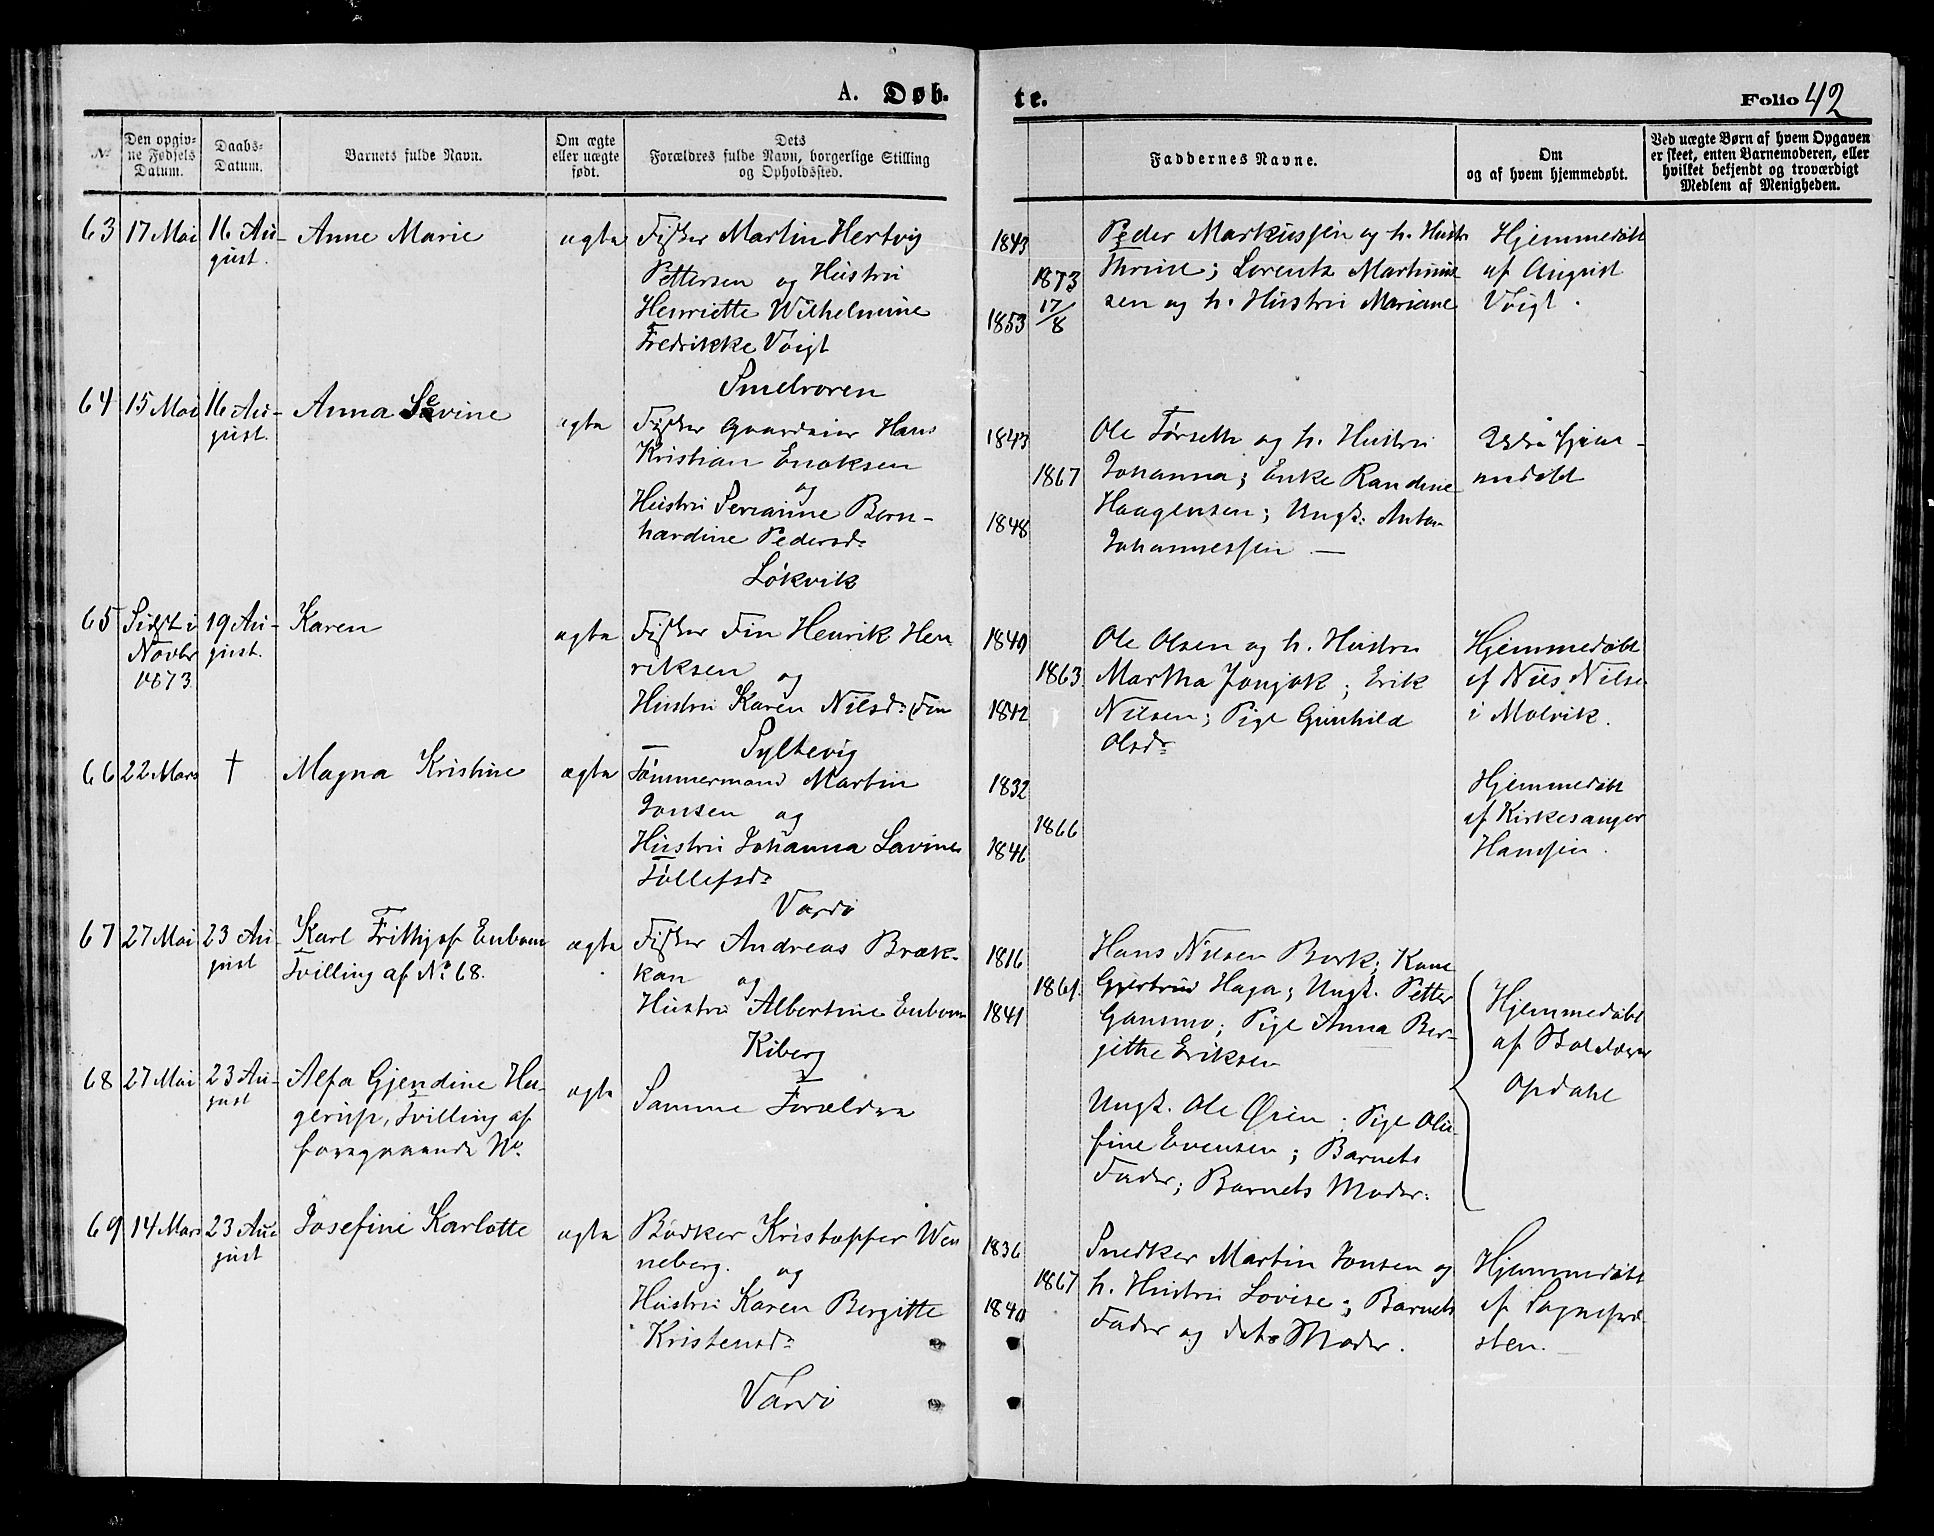 A. Døb.
te.
Folio 42
No
Den opgiv-
ne Fødsels
Datum.
Daabs-
Datum.
Barnets fulde Navn.
Om ægte
eller uægte
født.
Dets
Forældres fulde Navn, borgerlige Stilling
og Opholdssted.
Faddernes Navne.
Om
og af hvem hjemmedøbt.
Ved uægte Børn af hvem Opgaven
er skeet, enten Barnemoderen, eller
hvilket bekjendt og troværdigt
Medlem af Menigheden.
63
17 Mai
16 Au-
gust.
Anne Marie
ægte
Fisker Martin Hertvig
Pettersen og Hustru
Henriette Wilhelmine
Fredrikke Voigt
Smelroren
1843
1853
1873
17/8
Peder Markussen og h. Hustr
Thrine; Lorents Martinus
sen og h. Hustru Mariane
Hjemmedøbt
af August
Voigt.
64
15 Mai
16 Au-
gust.
Anna Sevine
ægte
Fisker Hans
Kristian Enoksen
og
Hustru Bern-
hardine Pedersd:
Løkvik
1843
1848
1867
Ole Førseth og h. Hustru
Johanna; Enke Randine
Haagensen; Ungk: Anton
Johannessen —
Ikke hjem-
medøbt
65
Sidst i
Novbr
1873
19 Au-
gust.
Karen
ægte
Fisker Fin Henrik Hen
riksen og
Hustru Karen Nilsd: (Fin
Syltevig
1840
1842
1863
Ole Olsen og h. Hustru
Martha Jonjok; Erik
Nilsen; Pige Gunhild
Olsdr
Hjemmedøbt
af Nils Nilsen
i Molvik.
66
22 Mars
†
Magna Kristine
ægte
Tømmermand Martin
Jonsen og
Hustru Johanna Lavine
Tollefsdr
Vardø
1832
1846
1866
Hjemmedøbt
af Kirkesanger
Hansen.
67
27 Mai
23 Au-
gust
Karl Frithjof Enbom
Tvilling af No 68.
ægte
Fisker Andreas Bræk-
kan og
Hustru Albertine Enbom
Kiberg
1816
1841
1861.
Hans Nilsen Bork; Kone
Gjertrud Haga; Ungk. Petter
Gansmo; Pige Anna Ber-
gitthe Eriksen
Hjemmedøbt
af
Opdahl
68
27 Mai
23 Au-
gust
Alfa Gjendine Hu-
gerup, Tvilling af
foregaaende No.
ægte
Samme Forældre
Ungk. Ole Øien; Pige Olu-
fine Evensen; Barnets
Fader; Barnets Moder.
69
14 Mars
23 Au-
gust
Josefine Karlotte
ægte
Bødker Kristoffer Wen
neberg. og
Hustru Karen Bergitte
Kristensd:
Vardø
1836
1840
1867
Snedker Martin Jonsen og
h. Hustru Lovise; Barnets
Fader og dets Moder.
Hjemmedøbt
af Sognepre
sten.